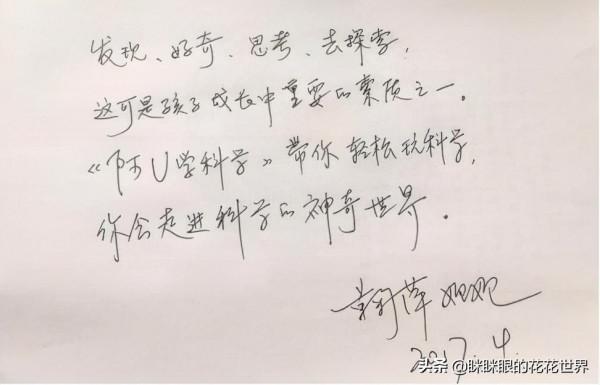 发现、好奇、思考、去探索,
这可是孩子成长中重要的素质之一。
《阿U学科学》带你轻松玩科学,
你会走进科学的神奇世界。
鞠萍姐姐
2017.4.
头条 @眯眯眼的花花世界